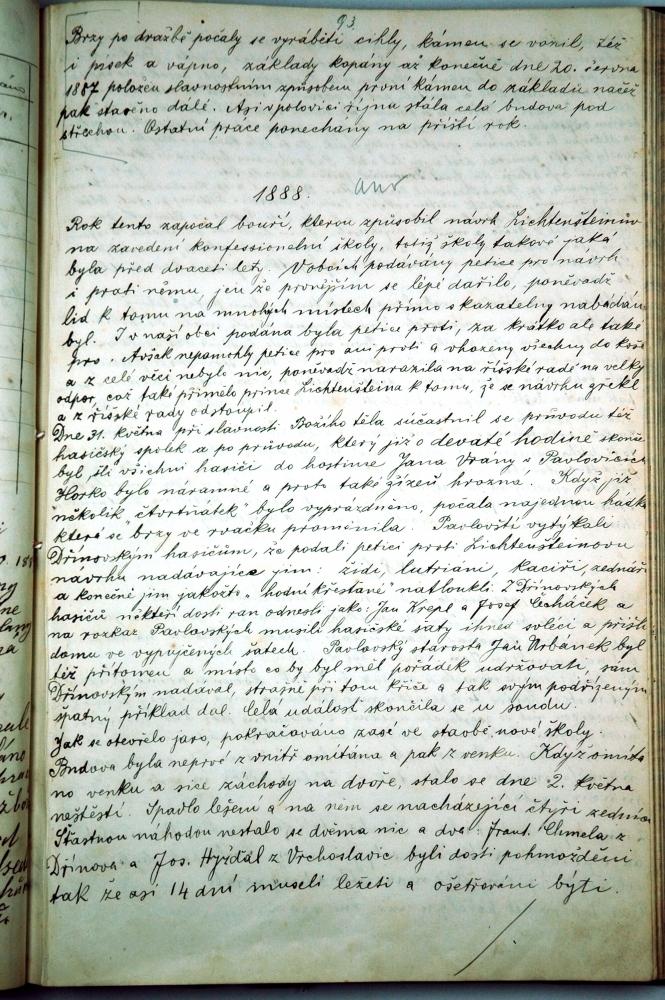 93
Brzy po dražbě počaly se vyráběti cihly, kámen se vozil, též
i písek a vápno, základy kopány až konečně dne 20. června
1887 položen slavnostním způsobem první kámen do základů načež
pak stavěno dále. Asi v polovici října stála celá budova pod
střechou. Ostatní práce ponechány na příští rok.
1888.
Rok tento započal bouří, kterou způsobil návrh Lichtenšteinův
na zavedení konfessionelní školy, totiž školy takové jaká
byla před dvaceti lety. V obcích podávány petice pro návrh
i proti němu jen že prvnějším se lépe dařilo, poněvadž
lid k tomu na mnohých místech přímo s kazatelny nabádán
byl. I v naší obci podána byla petice proti, za krátko ale také
pro. Avšak nepomohly petice pro ani proti a vhozeny všechny do koše
a z celé věci nebylo nic, poněvadž narazila na říšské radě na velký
odpor, což také přimělo prince Lichtenšteina k tomu, že se návrhu zřekl
a z říšské rady odstoupil.
Dne 31. května při slavnosti Božího těla súčastnil se průvodu též
hasičský spolek a po průvodu, který již o devaté hodině skončen
byl, šli všichni hasiči do hostince Jana Vrány v Pavlovicích
Horko bylo náramné a proto také žízeň hrozná. Když již
"několik čtvrtňátek" bylo vyprázdněno, počala najednou hádka
které se brzy ve rvačku proměnila. Pavlovští vytýkali
Dřínovským hasičům, že podali petici proti Lichtenšteinovu
návrhu nadávajíce jim: židi, lutriáni, kacíři, zednáři
a konečně jim jakožto "hodní křesťané" natloukli. Z Dřínovských
hasičů někteří dosti ran odnesli jako: Jan Krepl a Josef Čeháček a
na rozkaz Pavlovských musili hasičské šaty ihned svléci a přišli
domu ve vypůjčených šatech. Pavlovský starosta Jan Urbánek byl
též přítomen a místo co by byl měl pořádek udržovati, sám
Dřínovským nadával, strašně při tom křiče a tak svým podřízeným
špatný příklad dal. Celá událost skončila se u soudu.
Jak se otevřelo jaro, pokračováno zase ve stavbě nové školy.
Budova byla nejprve z vnitř omítána a pak z venku. Když omítá-
no venku a sice záchody na dvoře, stalo se dne 2. května
neštěstí. Spadlo lešení a na něm se nacházející čtyři zedníci
Šťastnou náhodou nestalo se dvěma nic a dva: Frant. Chmela z
Dřínova a Jos. Hýždal z Vrchoslavic byli dosti pohmožděni
tak že asi 14 dní museli ležeti a ošetřováni býti.